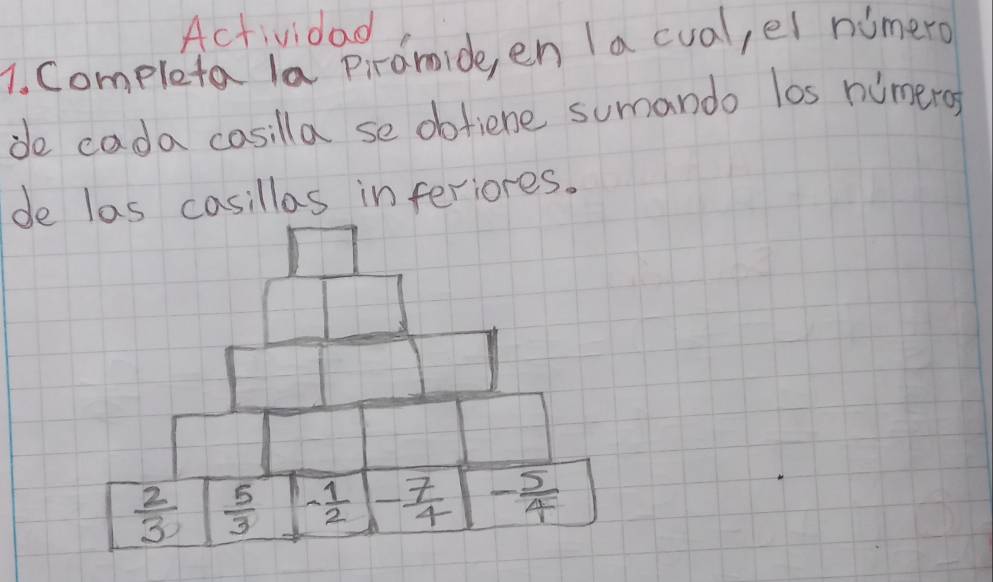 Actividad
1. Completa la Pirámide, en la cual, el número
de cada casilla se obtiene sumando los números
de las casillas inferiores.
2/3 5/3 -1/2 -7/4 -5/4